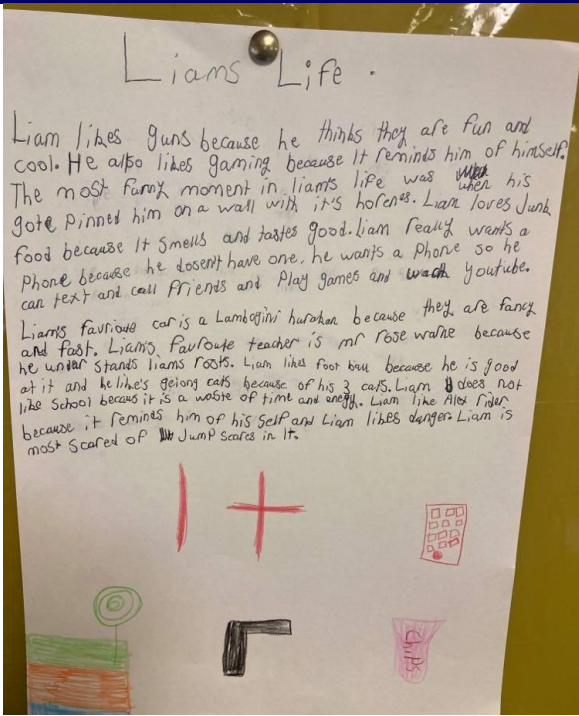 Liams Life.
Liam likes guns because he thinks they are fun and
cool. He also likes gaming because It reminds him of himself.
The most funny moment in liam's life was when his
gote pinned him on a wall with it's horenes. Liam loves Junk
food because It smells and tastes good. liam really wants a
Phone because he dosent have one. he wants a Phone so he
can text and call friends and Play games and wach youtube.
Liams favrioute car is a Lambogini hurakan because they are fancy
and fast. Liams favroute teacher is mr rose warne because
he under stands liams roots. Liam likes foot ball because he is good
at it and he like's geiong cats because of his 3 cats. Liam does not
like School becaus it is a waste of time and enegy. Liam like Alex rider
because it reminds him of his self and Liam likes danger. Liam is
most scared of Jump scares in It.
Chips